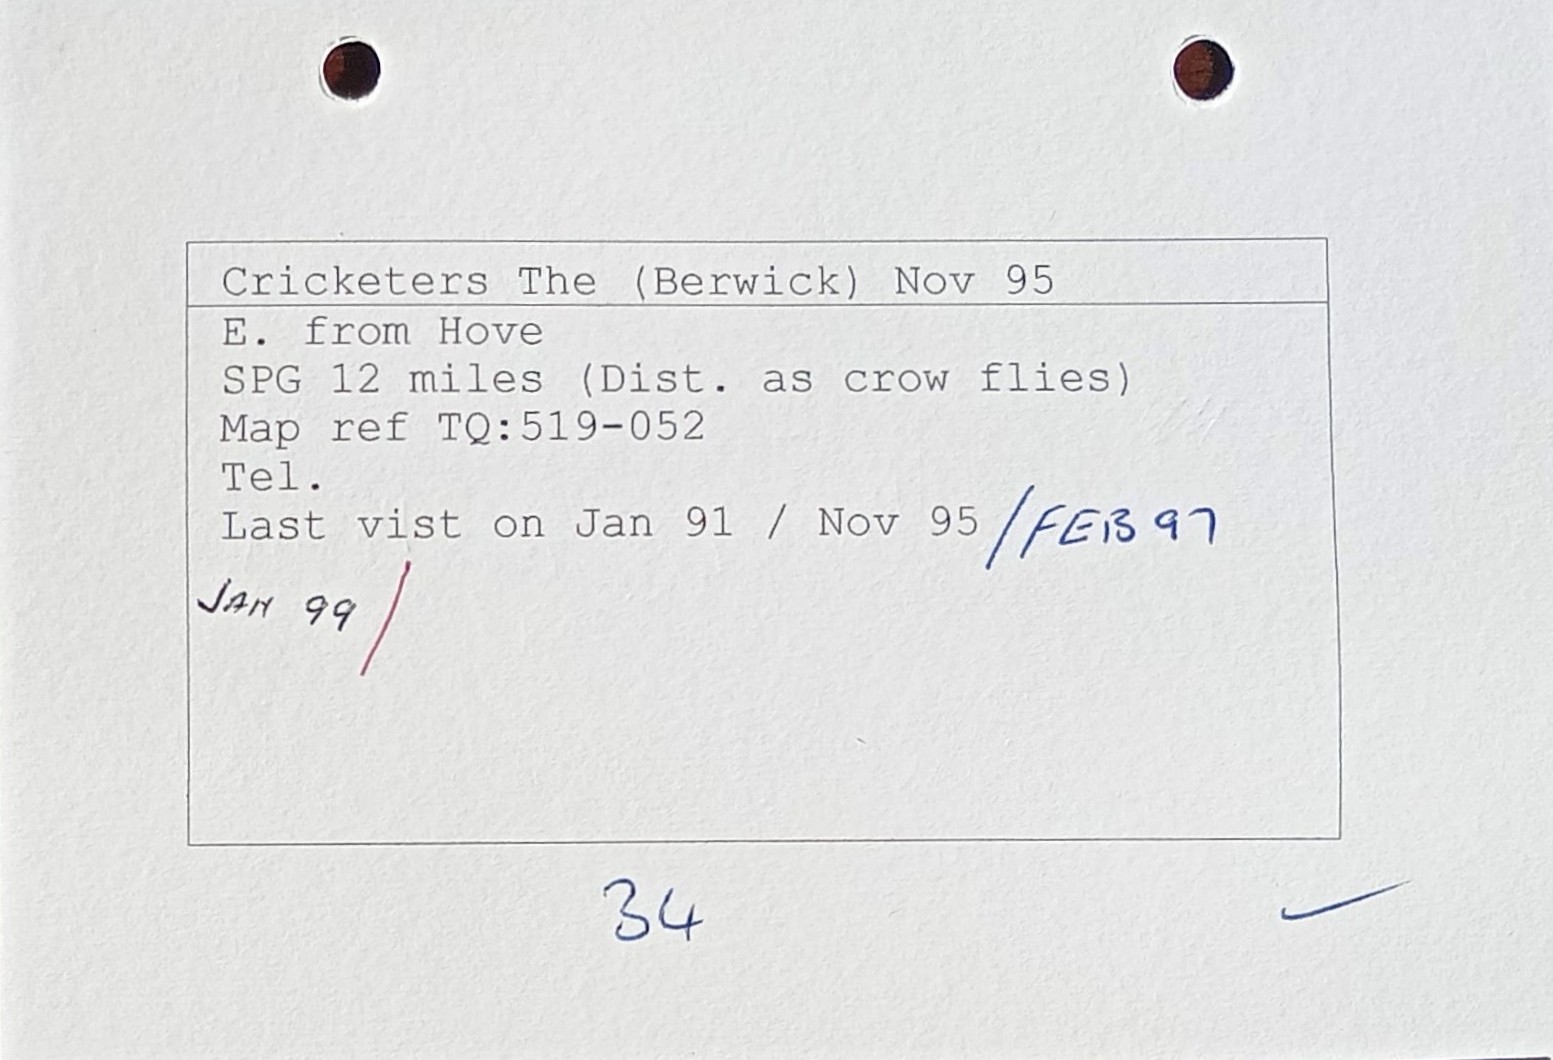 Cricketers The (Berwick) Nov 95
E. from Hove
SPG 12 miles (Dist. as crow flies)
Map ref TQ:519-052
Tel.
Last vist on Jan 91 / Nov 95 / FEB 97
JAN 99 /
34